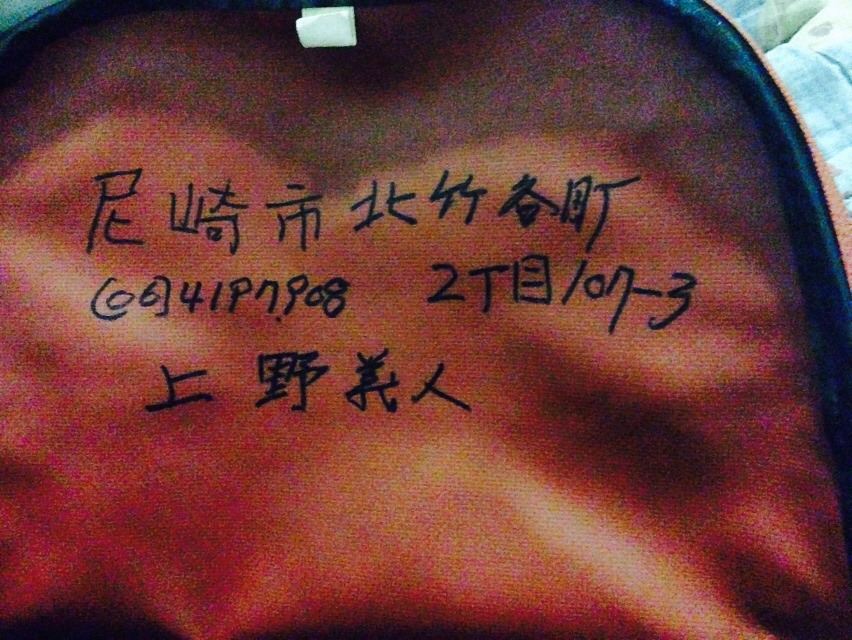 尼崎市北竹谷町
(06)4197908 2丁目107-3
上野義人